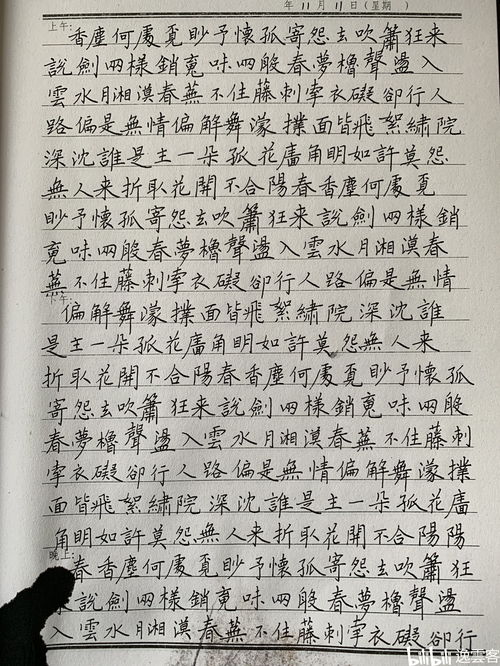 年 11 月 11 日(星期 )
上午:
香塵何處覓眇予懷孤寄怨去吹簫狂来
說劍兩樣銷魂味兩般春夢櫓聲盪入
雲水月湘漠春蕪不住藤刺牽衣礙卻行人
路偏是無情偏解舞濛撲面皆飛絮繡院
深沈誰是主一朵孤花廧角明如許莫怨
無人来折取花開不合陽春香塵何處覓
眇予懷孤寄怨去吹簫狂来說劍兩樣銷
魂味兩般春夢櫓聲盪入雲水月湘漠春
蕪不住藤刺牽衣礙卻行人路偏是無情
下午:
偏解舞濛撲面皆飛絮繡院深沈誰
是主一朵孤花廧角明如許莫怨無人来
折取花開不合陽春香塵何處覓眇予懷孤
寄怨去吹簫狂来說劍兩樣銷魂味兩般
春夢櫓聲盪入雲水月湘漠春蕪不住藤刺
牽衣礙卻行人路偏是無情偏解舞濛撲
面皆飛絮繡院深沈誰是主一朵孤花廧
角明如許莫怨無人来折取花開不合陽陽
晚上:
春香塵何處覓眇予懷孤寄怨去吹簫狂
說劍兩樣銷魂味兩般春夢櫓聲盪
入雲水月湘漠春蕪不住藤刺牽衣礙卻行
bilibili 逸雲客